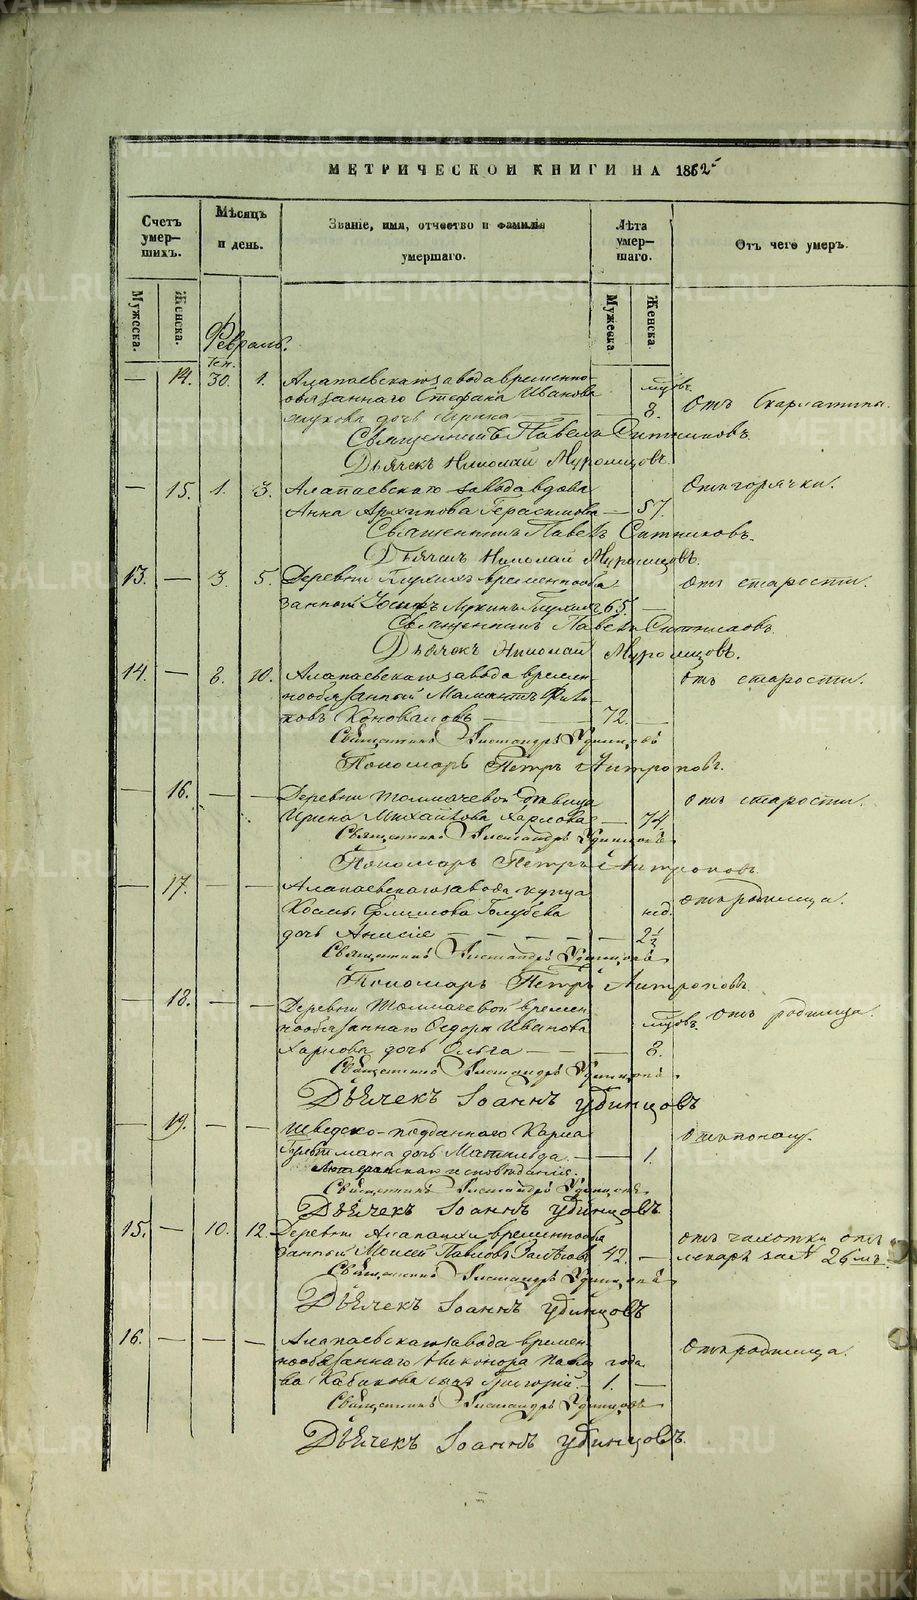 МЕТРИЧЕСКОЙ КНИГИ НА 1862
Счетъ умер-шихъ.
Мѣсяцъ и день.
Званіе, имя, отчество и фамилія умершаго.
Лѣта умер-шаго.
Отъ чего умеръ.
Мужеска.
Женска.
Мужеска
Женска.
Февраль.
Ген.
— 14. 30. 1. Алапаевскаго завода временно- мцовъ.
обязаннаго Стефана Иванова 8. Отъ скарлатины.
дочь Ирина —
Священникъ Павелъ Ситниковъ.
Дьячекъ Николай Муромцовъ.
— 15. 1. 3. Алапаевскаго завода вдова Отъ горячки.
Анна Архипова Герасимова — 57
Священникъ Павелъ Ситниковъ.
Дьячекъ Николай Муромцовъ.
13. — 3. 5. Деревни временнообя- отъ старости.
занной 65. —
Священникъ Павелъ Ситниковъ.
Дьячекъ Николай Муромцовъ.
14. — 8. 10. Алапаевскаго завода времен- отъ старости.
нообязанный Мамантъ
Коноваловъ — 72. —
Священникъ Александръ Удинцовъ
Пономарь Петръ Антроповъ.
— 16. — — Деревни Толмачевой дѣвица отъ старости.
Ирина Михайлова Харлова — 74
Священникъ Александръ Удинцовъ
Пономарь Петръ Антроповъ.
— 17. — — Алапаевскаго завода купца отъ родимца.
Козмы Голубева нед.
дочь Анисія — — — — — 2½
Священникъ Александръ Удинцовъ
Пономарь Петръ Антроповъ.
— 18. — — Деревни Толмачевой времен- мцовъ. отъ родимца.
нообязаннаго Ѳедора Иванова
Харлова дочь Ольга — — — 8.
Священникъ Александръ Удинцовъ.
Дьячекъ Іоаннъ Удинцовъ
— 19. — — Шведско-подданнаго Карла
дочь Матильда. — — 1.
Лютеранскаго исповѣданія.
Священникъ Александръ Удинцовъ.
Дьячекъ Іоаннъ Удинцовъ.
15. — 10. 12. Деревни Алапаихи временнообя- отъ чахотки отъ
занной Моисей Павловъ 42. — лекаря за № 26-мъ.
Священникъ Александръ Удинцовъ
Дьячекъ Іоаннъ Удинцовъ
16. — — — Алапаевскаго завода времен- Отъ родимца.
нообязаннаго Никонора года
Кабакова сынъ Григорій. — 1. —
Священникъ Александръ Удинцовъ
Дьячекъ Іоаннъ Удинцовъ.
METRIKI.GASO-URAL.RU